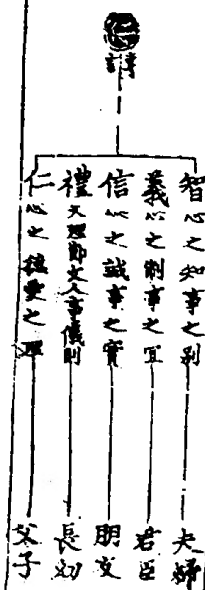 智心之知事之別 夫婦
義心之制事之宜 君臣
信心之誠事之實 朋友
禮天理節文人事儀則 長幼
仁心之德愛之理 父子